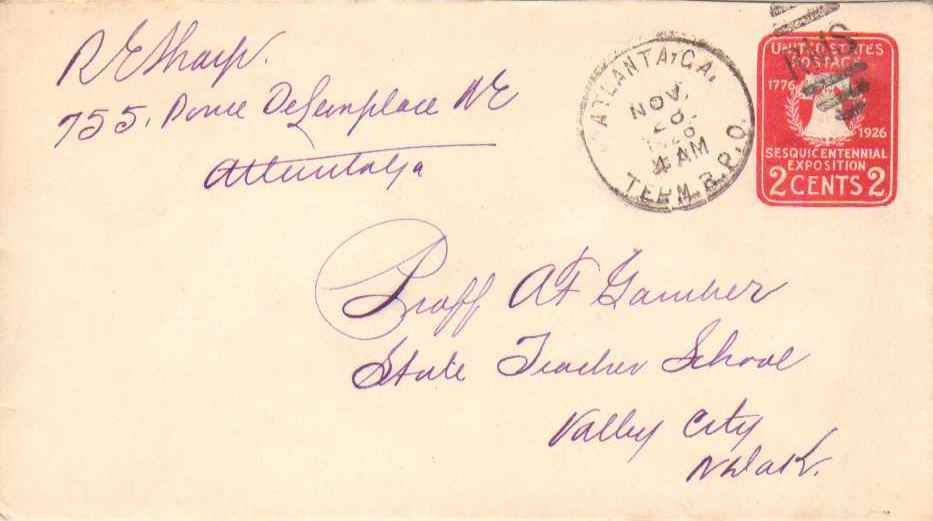 R E Sharp.
755. Ponce DeLeonplace NE
Atlanta Ga
ATLANTA, GA.
NOV.
20
1926
4 AM
TERM. R.P.O.
RMS
UNITED STATES
POSTAGE
1776 1926
SESQUICENTENNIAL
EXPOSITION
2 CENTS 2
Proff AF Gamber
State Teacher School
Valley City
N Dak.